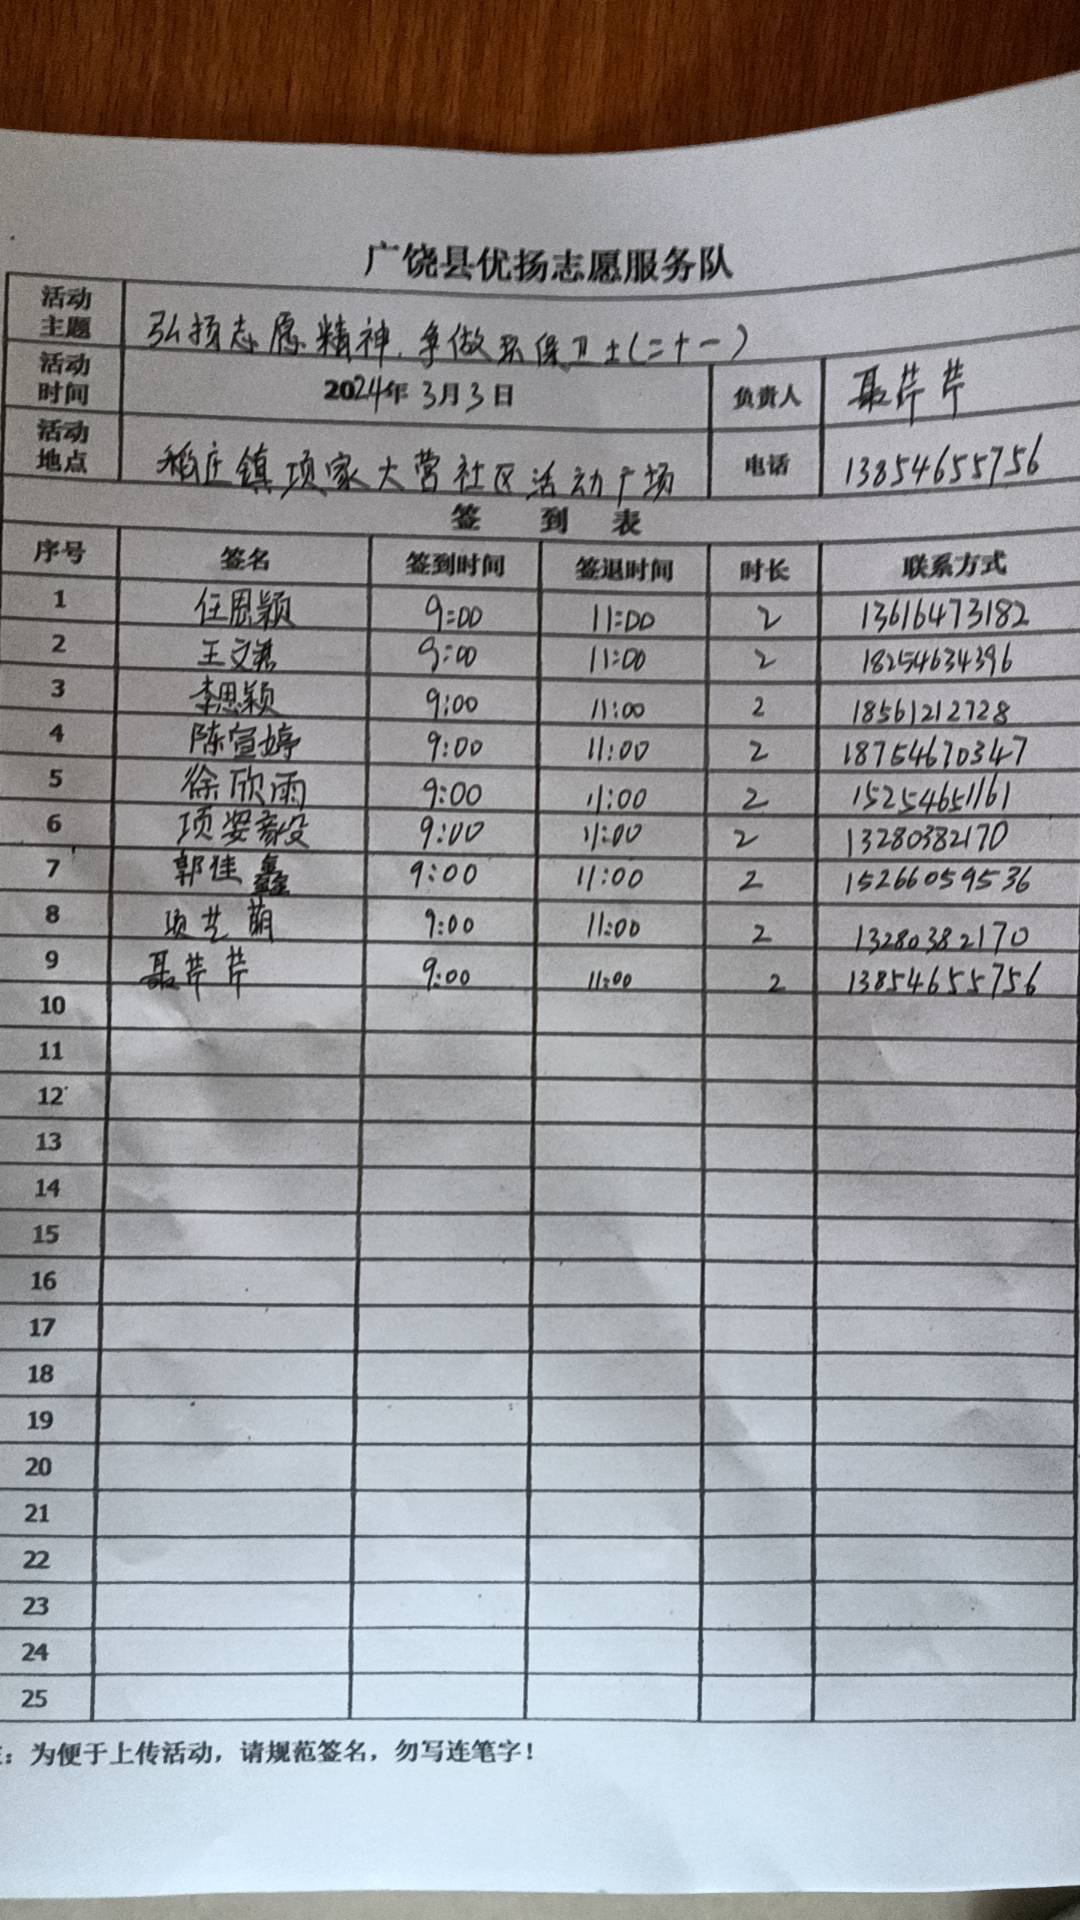 广饶县优扬志愿服务队
活动主题 弘扬志愿精神.争做环保卫士(二十一)
活动时间 2024年3月3日 负责人 聂芹芹
活动地点 稻庄镇项家大营社区活动广场 电话 13854655756
签 到 表
序号 签名 签到时间 签退时间 时长 联系方式
1 任恩颖 9:00 11:00 2 13616473182
2 王文 9:00 11:00 2 18254634396
3 李思颖 9:00 11:00 2 18561212728
4 陈宣婷 9:00 11:00 2 18754670347
5 徐欣雨 9:00 11:00 2 15254651161
6 项 9:00 11:00 2 13280382170
7 郭佳鑫 9:00 11:00 2 15266059536
8 项艺萌 9:00 11:00 2 13280382170
9 聂芹芹 9:00 11:00 2 13854655756
10
11
12
13
14
15
16
17
18
19
20
21
22
23
24
25
：为便于上传活动，请规范签名，勿写连笔字！